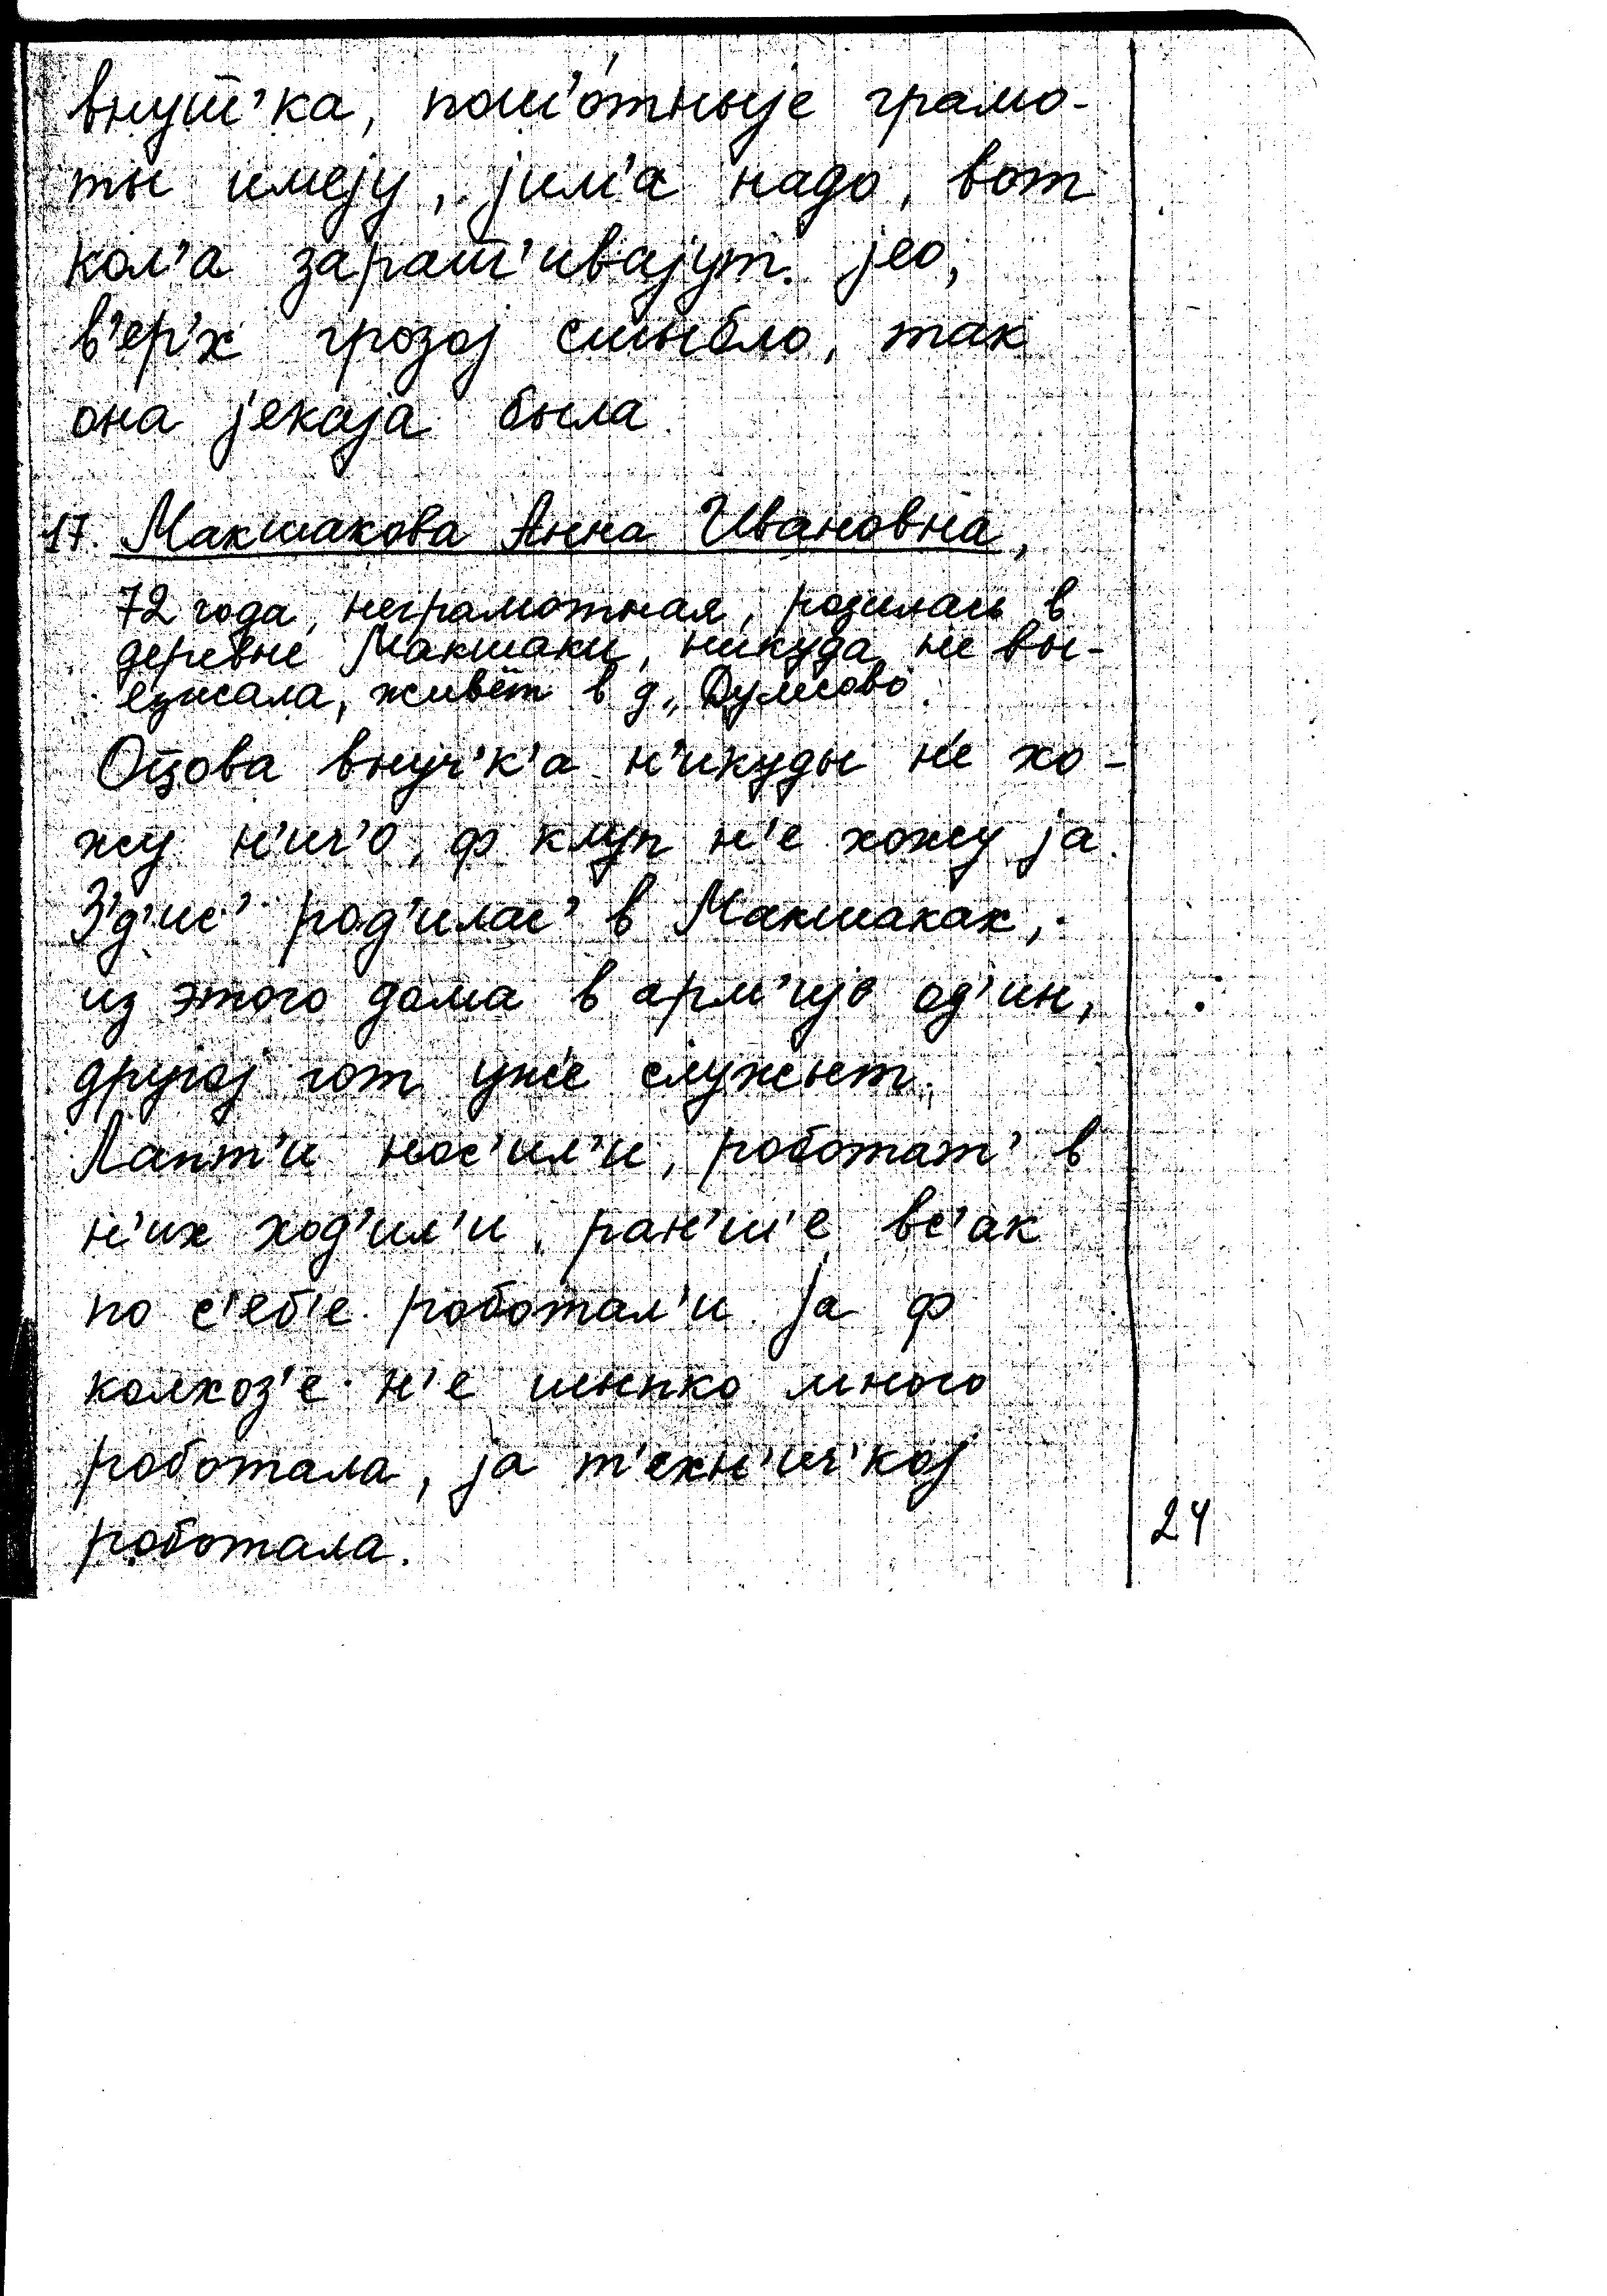 внут̅'ка, пош'о́тныје грамо-
ты имеју, јим'а надо, вот
кол'а зарат̅'ивајут јео,
в'ер'х грозој сшыбло, так
она јекаја была.
17. Макшакова Анна Ивановна,
72 года, неграмотная, родилась в
деревне Макшаки, никуда не вы-
езжала, живёт в д.
Оцова внуч'к'а н'икуды не хо-
жу н'ич'о, ф клуп н'е хожу ја.
З'д'ис' род'илас' в Макшаках,
из этого дома в арм'ије од'ин,
другој гот уже служыт.
Лапт'и нос'ил'и, роботат' в
н'их ход'ил'и, ран'ш'е вс'ак
по с'еб'е роботал'и ја ф
колхоз'е н'е шыпко много
роботала, ја т'ехн'ич'кој
роботала.
24